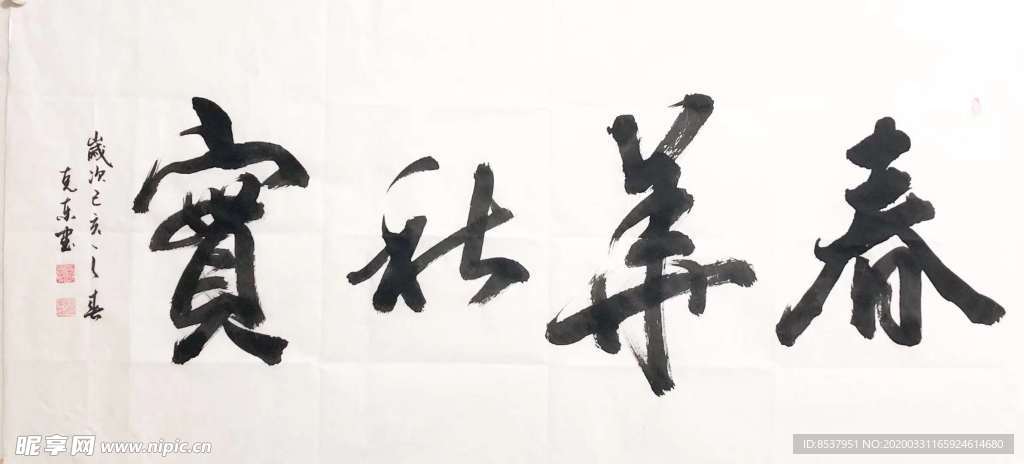 春華秋實
歲次己亥之春
克東書
昵享网 www.nipic.cn
ID:8537951 NO:20200331165924614680